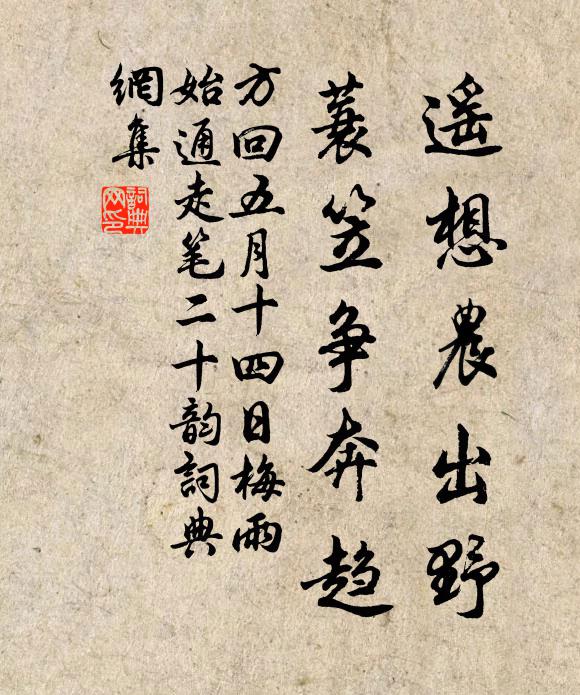 遥想農出野
蓑笠争奔趋
方回五月十四日梅雨
始通走笔二十韵詞典
網集
詞典
网印